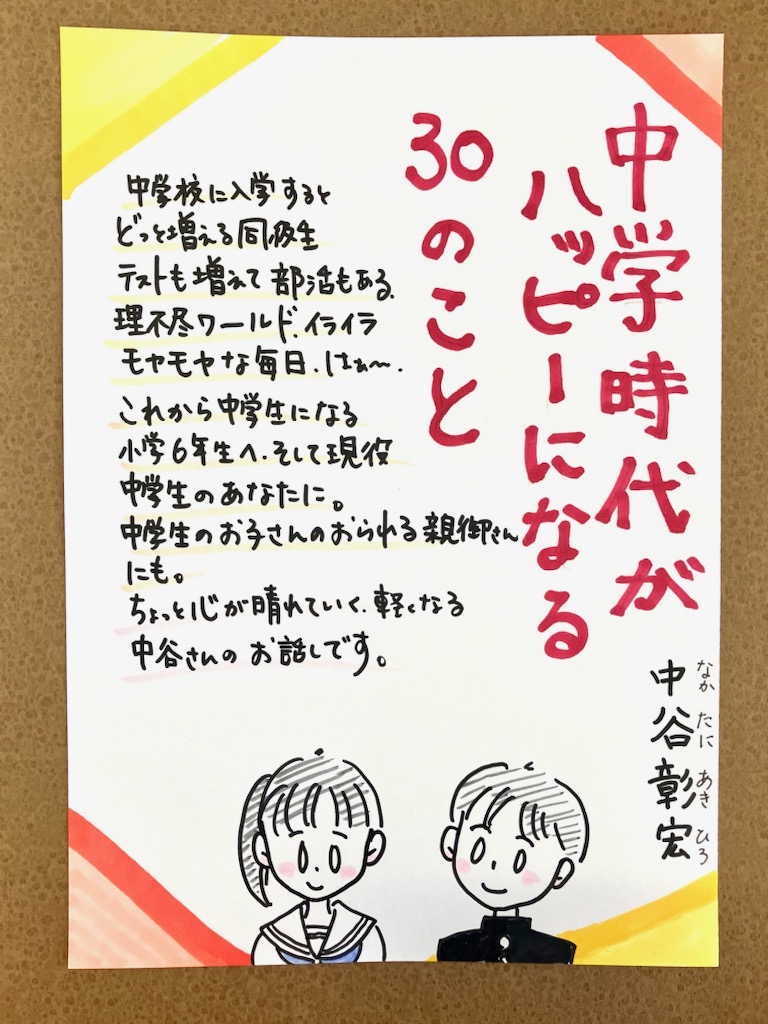 中学時代が
ハッピーになる
30のこと
中学校に入学すると
どっと増える同級生
テストも増えて部活もある。
理不尽ワールド、イライラ
モヤモヤな毎日、はぁ〜。
これから中学生になる
小学6年生へ、そして現役
中学生のあなたに。
中学生のお子さんのおられる親御さん
にも。
ちょっと心が晴れていく、軽くなる
中谷さんのお話しです。
中谷彰宏
なか たに あき ひろ